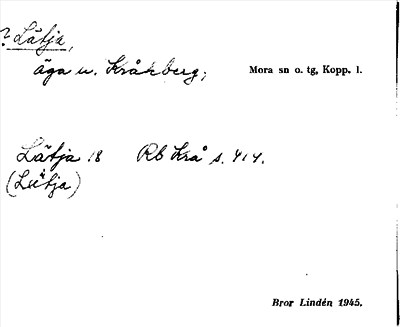 ? Lätja,
äga u. Kråkberg; Mora sn o. tg, Kopp. l.
Lätja 18 Rb Krå s. 414.
(Lätja)
Bror Lindén 1945.